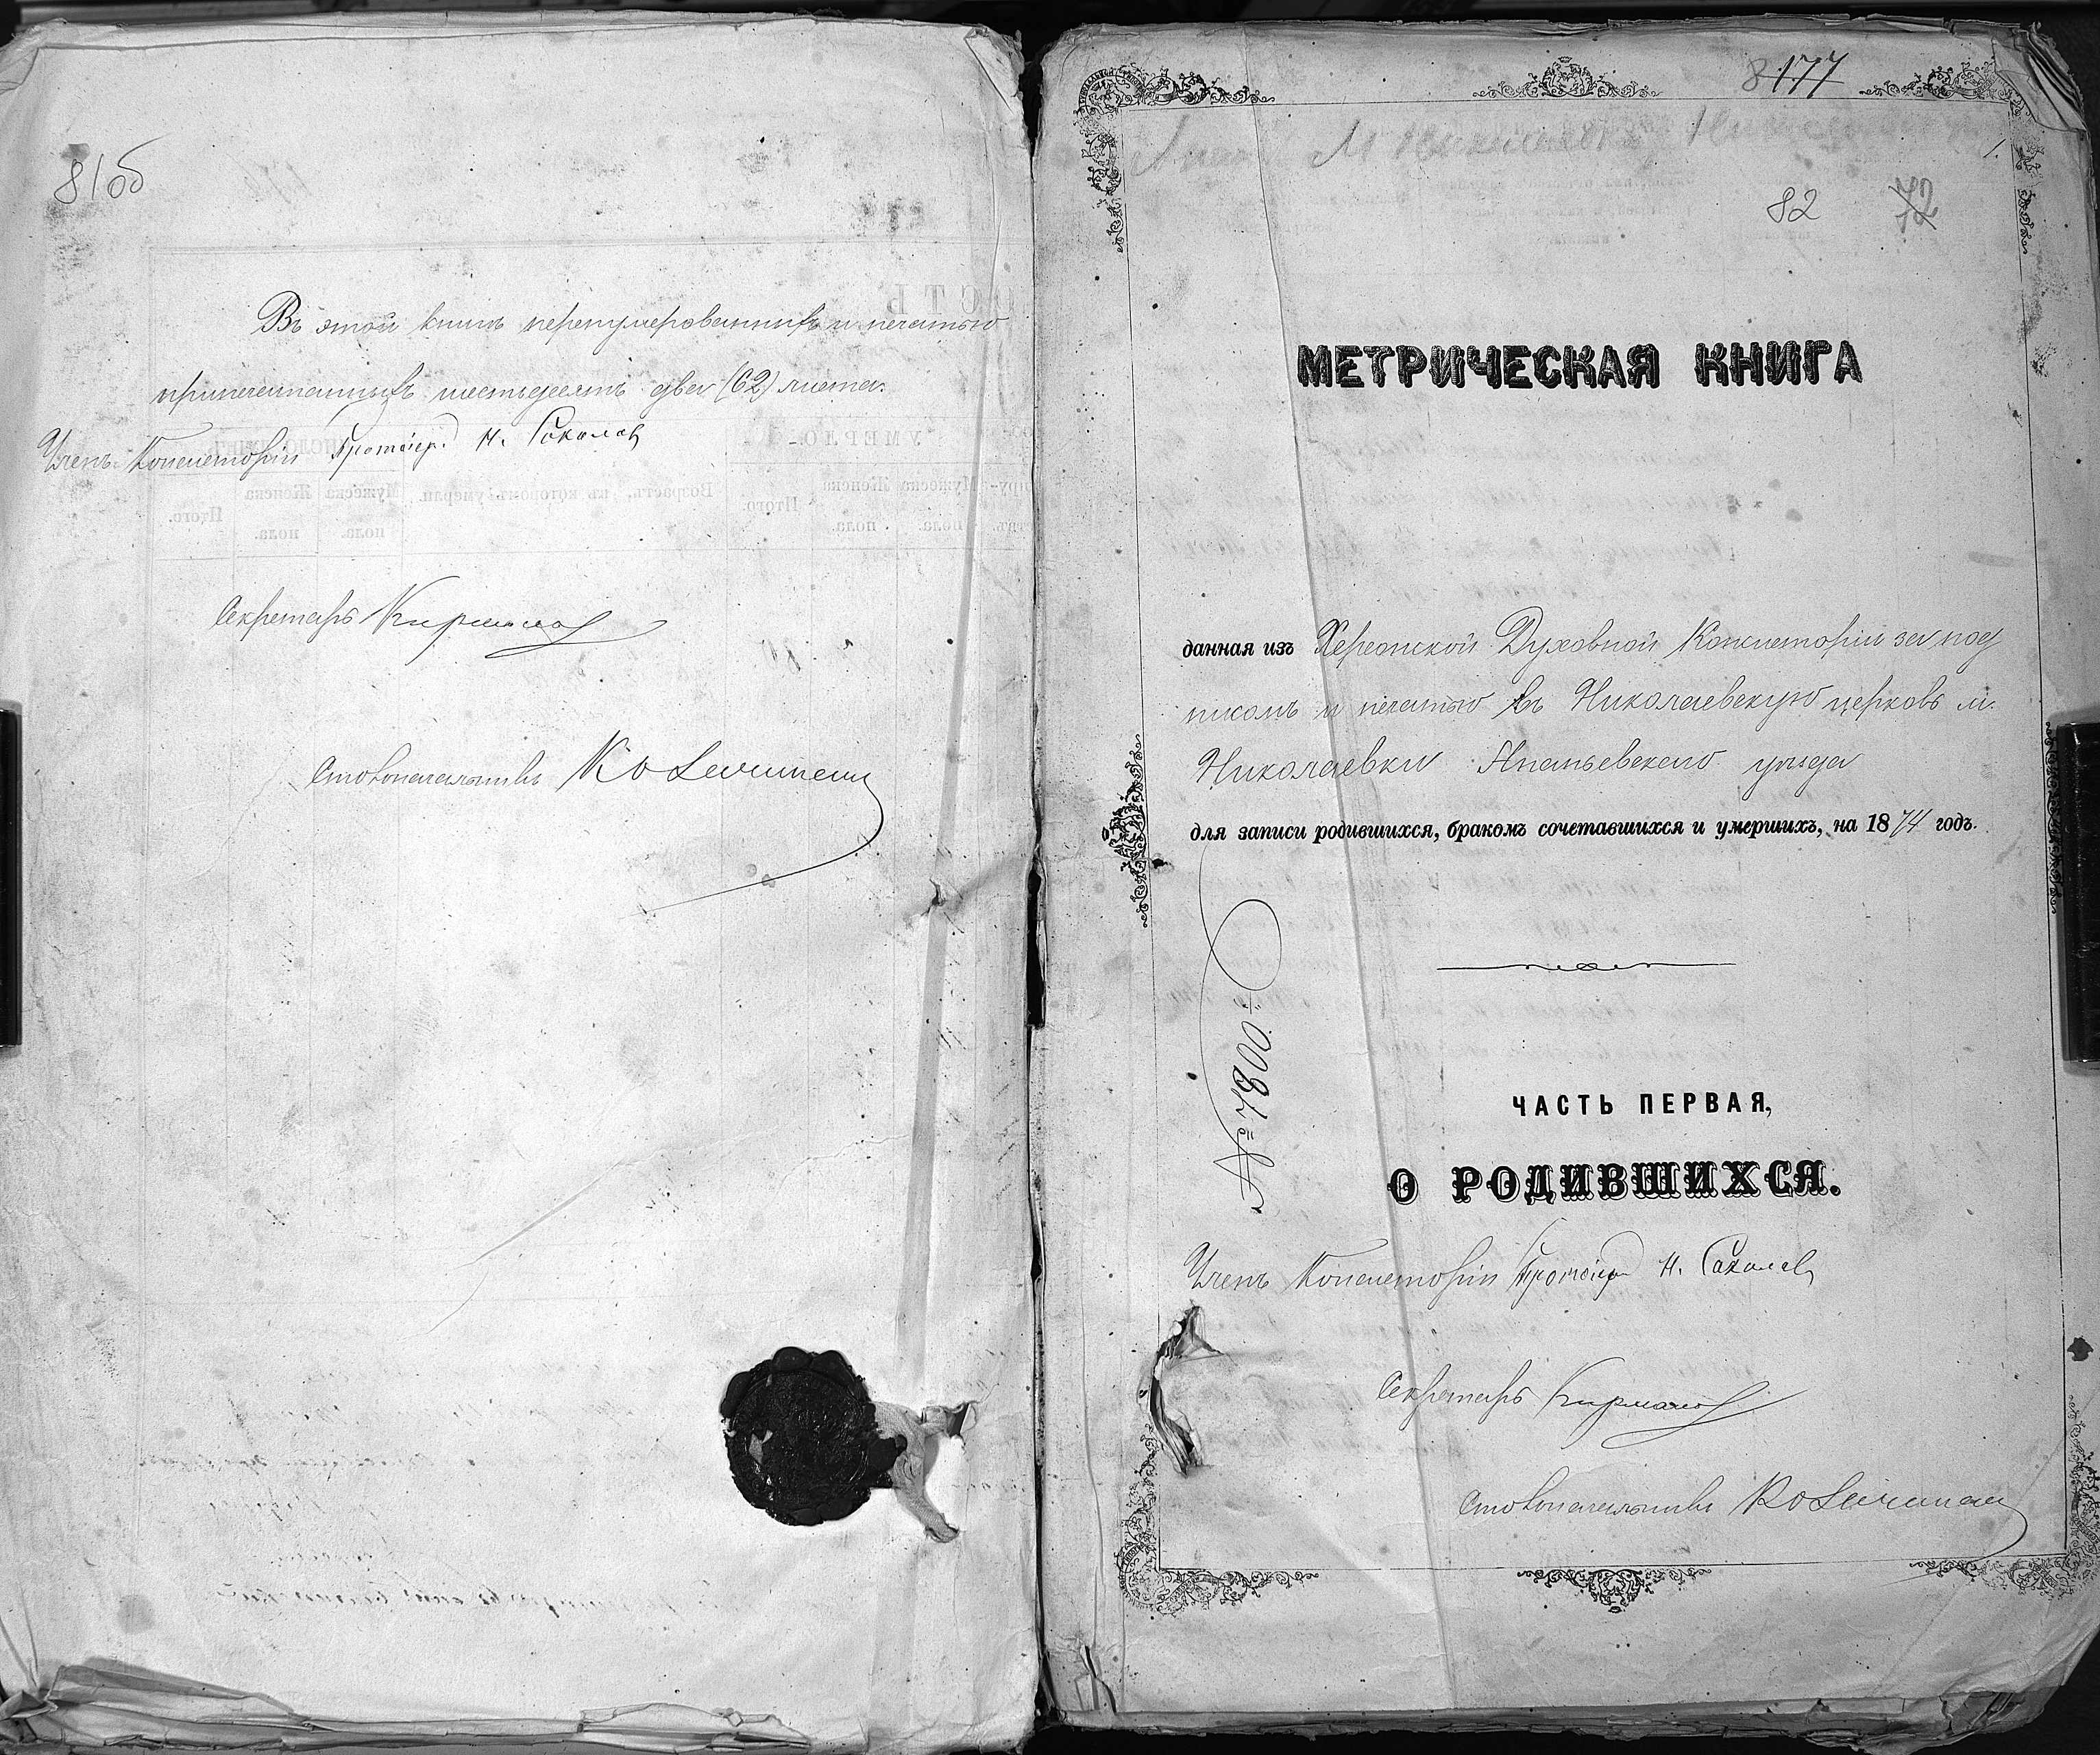 81об
Въ этой книгѣ перенумерованныхъ и печатью
припечатанныхъ шестьдесятъ два (62) листа.
Членъ Консисторіи Протоіер. Н. Соколовъ
Секретарь
Столоначальникъ
8177
82 72
МЕТРИЧЕСКАЯ КНИГА
данная изъ Херсонской Духовной Консисторіи за под
писомъ и печатью въ Николаевскую церковь м.
Николаевки Ананьевскаго уѣзда
для записи родившихся, бракомъ сочетавшихся и умершихъ, на 1874 годъ.
№ 7800
ЧАСТЬ ПЕРВАЯ,
О РОДИВШИХСЯ.
Членъ Консисторіи Протоіер Н. Соколовъ
Секретарь
Столоначальникъ